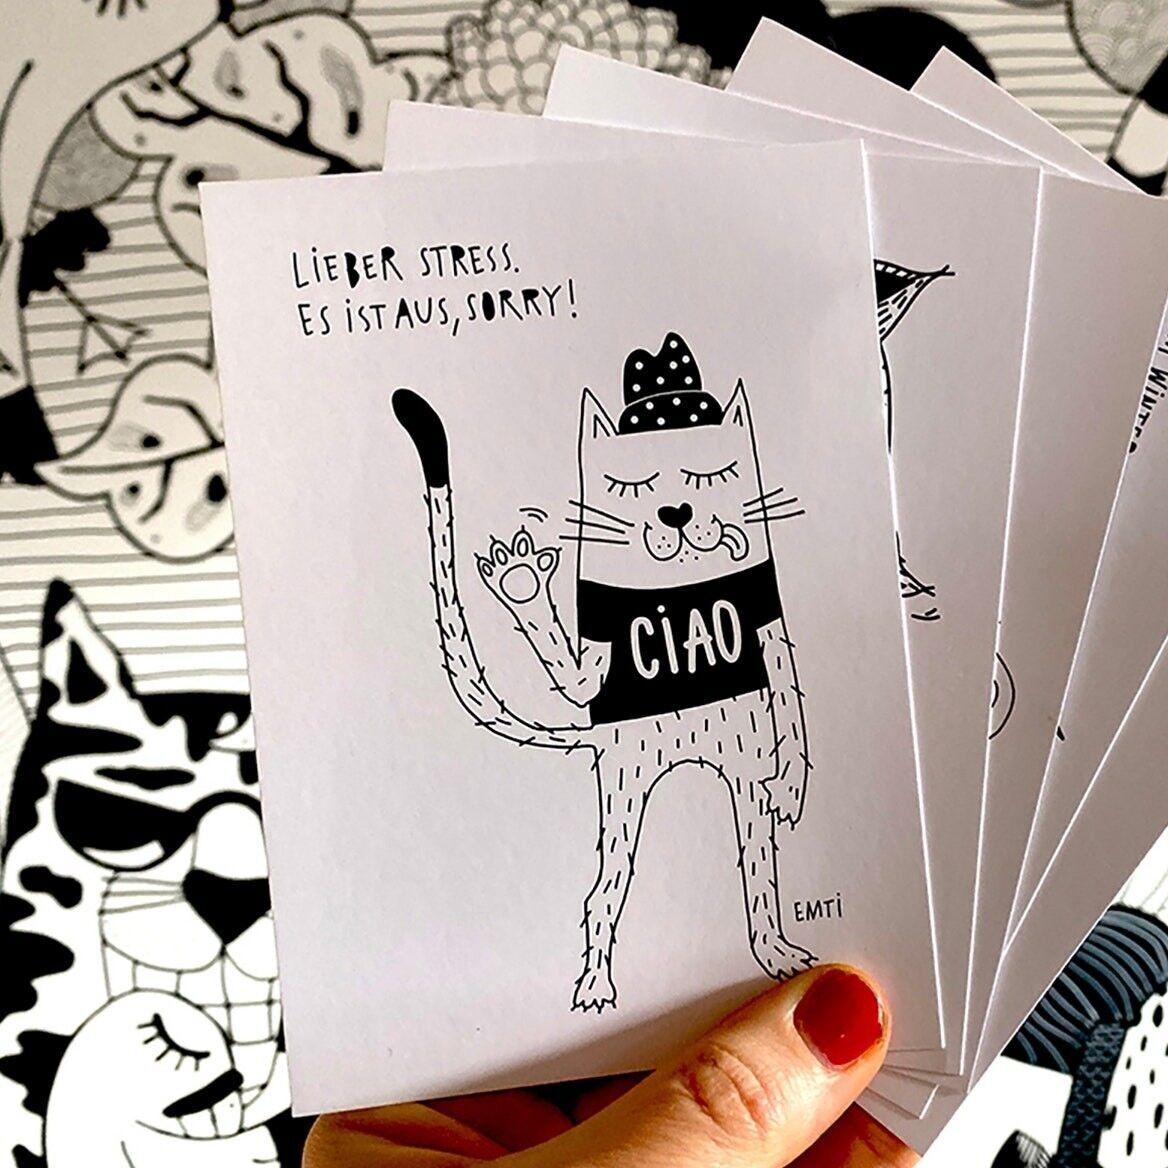 LIEBER STRESS.
ES IST AUS, SORRY!
CIAO
EMTI